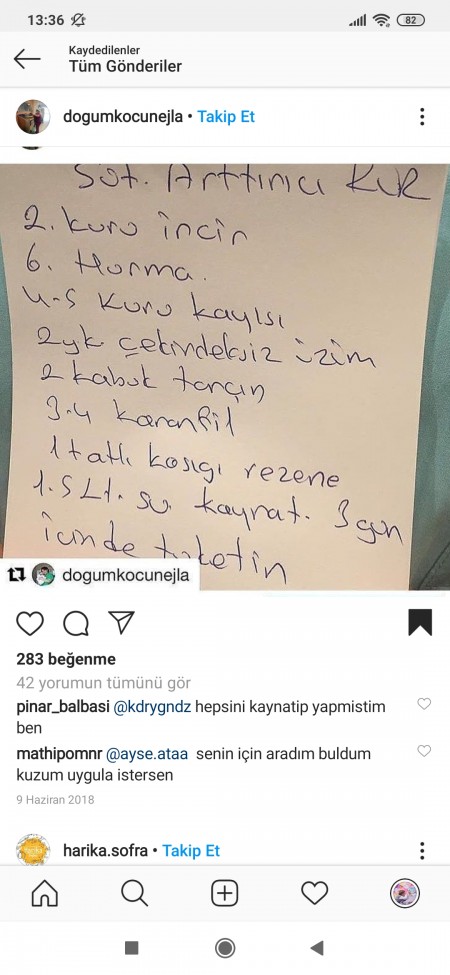 13:36
82
Kaydedilenler
Tüm Gönderiler
dogumkocunejla • Takip Et
Süt. Arttırıcı KÜR
2. kuru incir
6. Hurma.
4-5 kuru kayısı
2yk çekirdeksiz üzüm
2 kabuk tarçın
3-4 karanfil
1 tatlı kaşığı rezene
1.5 Lt. su kaynat. 3 gün
içinde tüketin
dogumkocunejla
283 beğenme
42 yorumun tümünü gör
pinar_balbasi @kdrygndz hepsini kaynatip yapmistim
ben
mathipomnr @ayse.ataa senin için aradım buldum
kuzum uygula istersen
9 Haziran 2018
harika.sofra • Takip Et